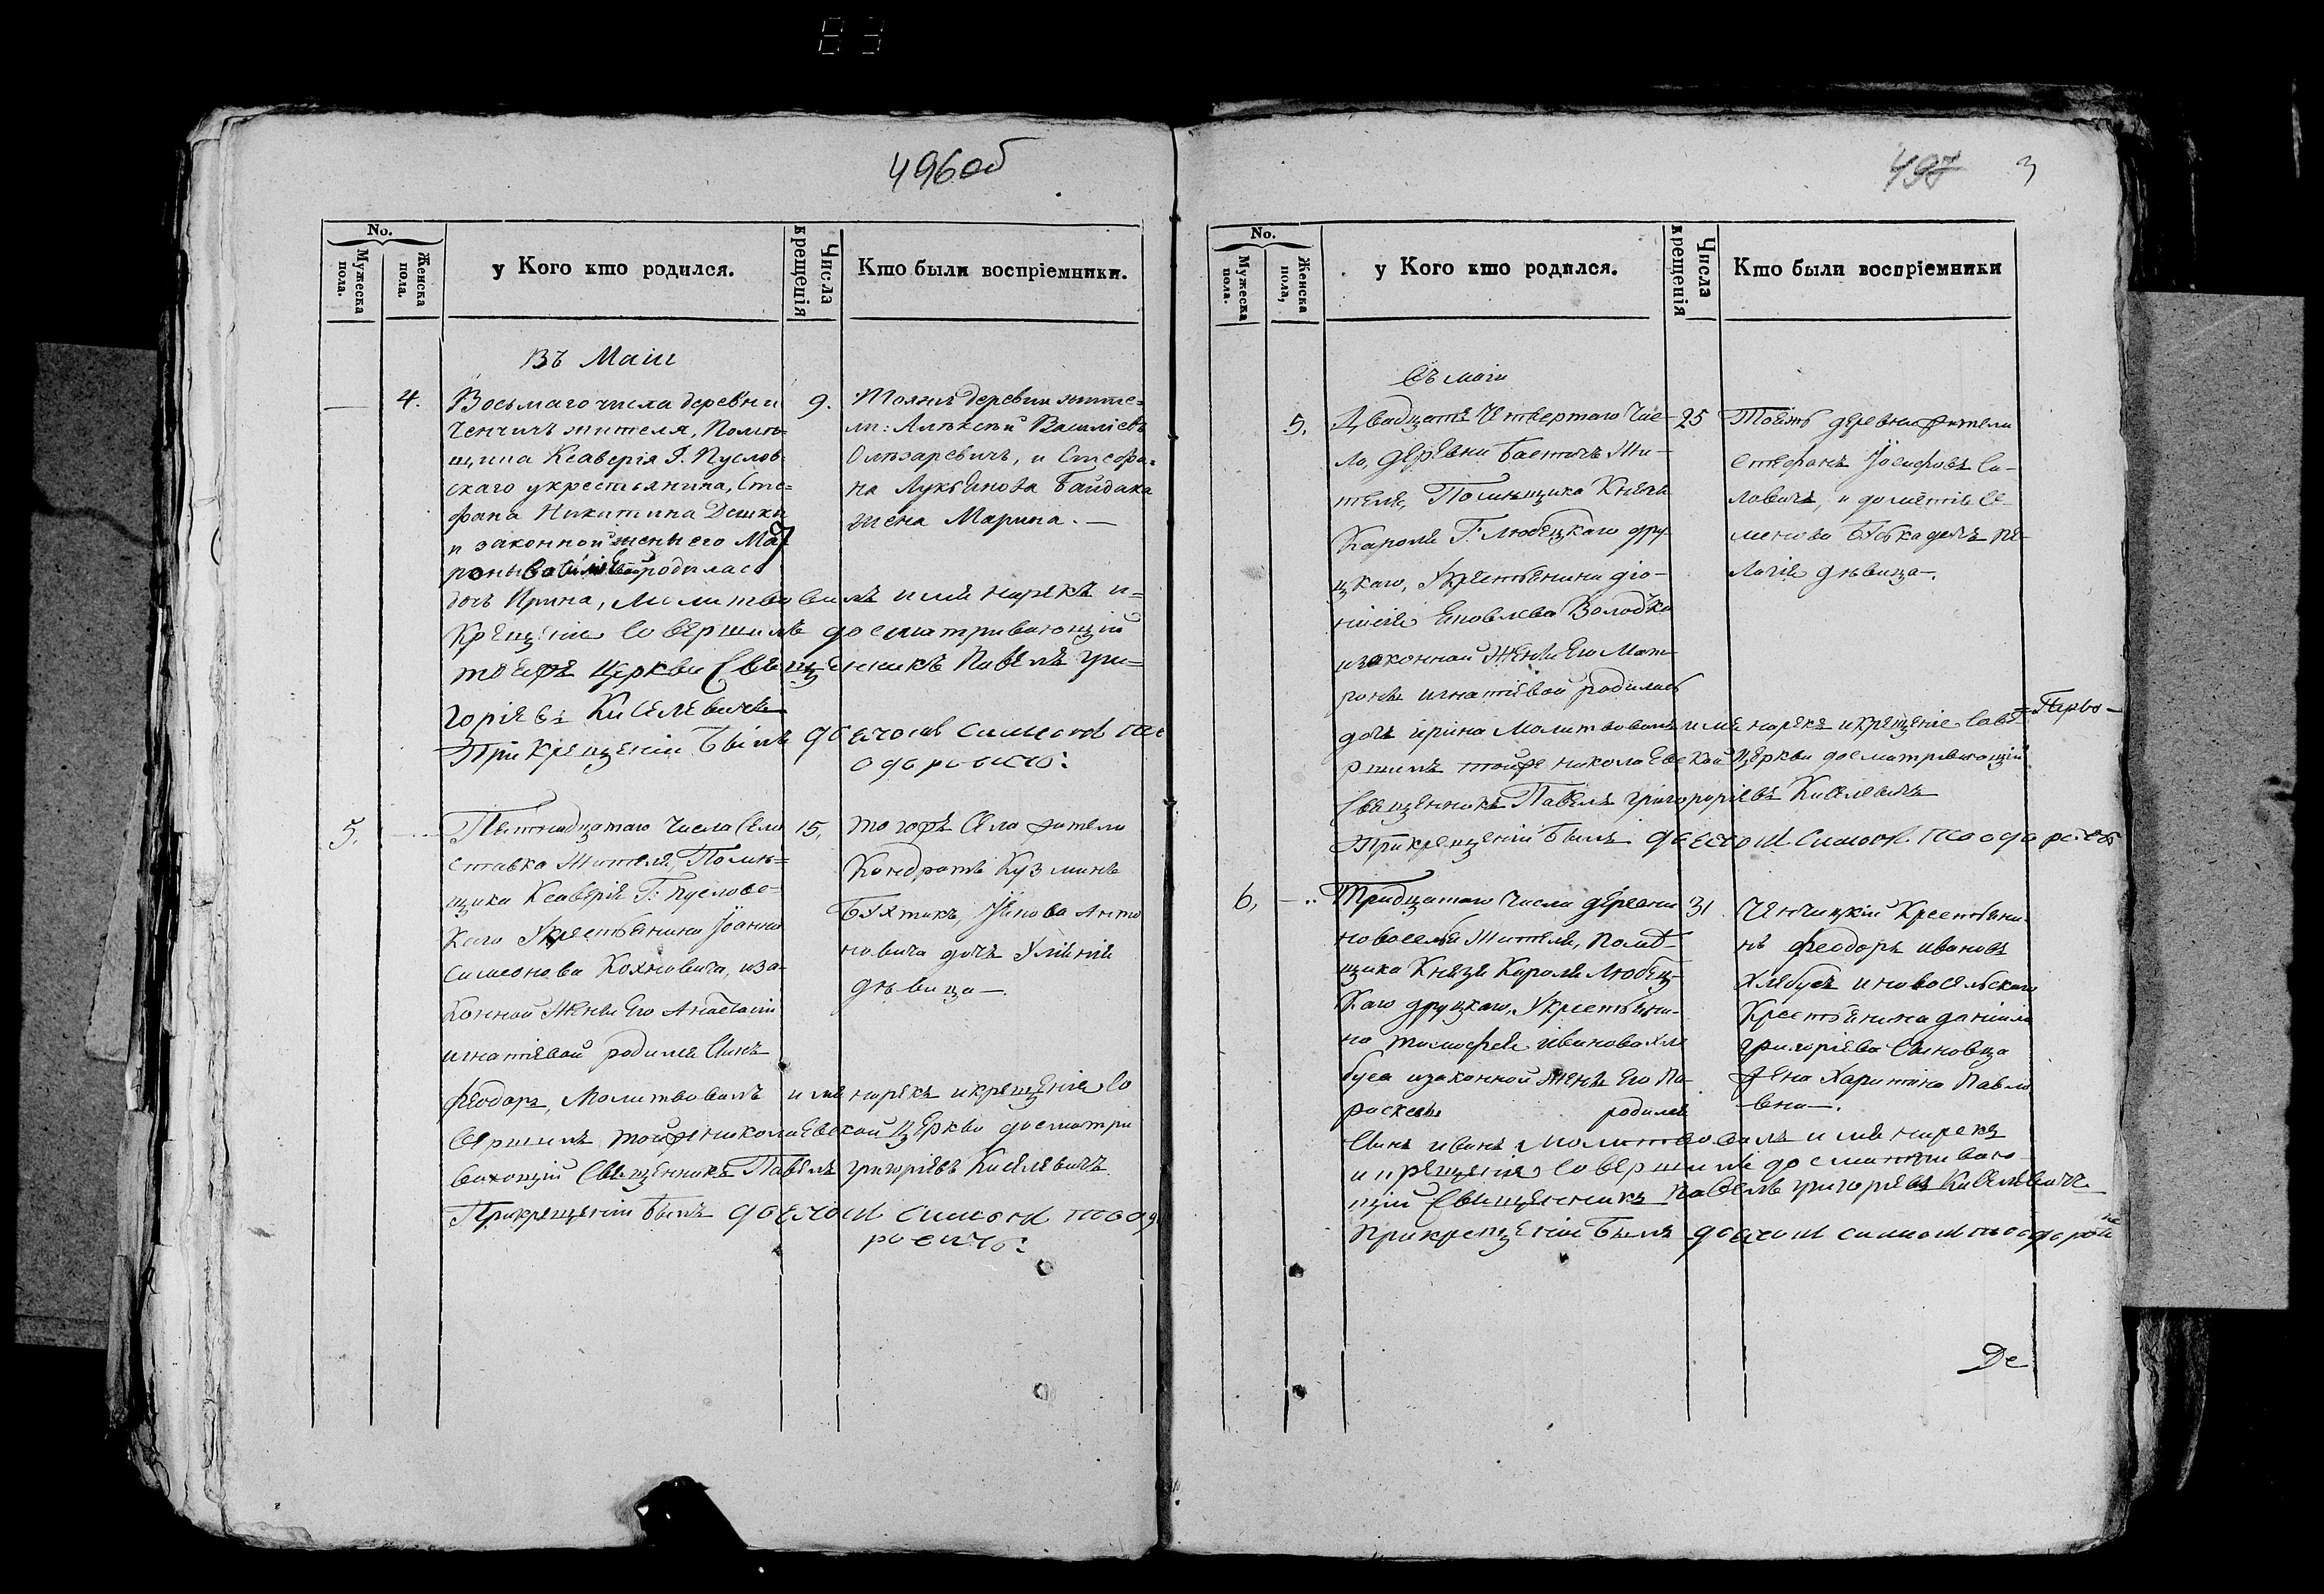 83
496об
No.
Мужеска пола.
Женска пола.
у Кого кто родился.
Числа крещенія
Кто были воспріемники.
Въ Маіи
4.
Восьмаго числа деревни
Ченчичъ жителя, Помѣ-
щика Ксаверія Г. Пуслов-
скаго укрестьянина, Сте-
фана Никитина Дешки
и законной жены его Мат
роны родилась
дочь Ирина, Молитвовалъ имя нарекъ и-
Крещеніе Совершилъ досматривающій
тоейже церкви Священникъ Павелъ Гри-
горіевъ Киселевичъ
При крещеніи былъ дьячокъ Симеонъ
9.
Тояже деревни жите-
ли: Алѣксѣй Василіевъ
Олѣзаревичъ, и Стефа-
на Лукьянова Байдака
жена Марина. —
5.
Пятнадцатаго Числа Села
ставка Жителя Помѣ-
щика Ксаверія Г: Пуслов-
Каго Укрестьянина Іоанна
Симеонова Кохновича, иза-
Конной Жены Его Анастасіи
игнатіевой родился Сынъ
феодоръ, Молитвовалъ имя нарекъ и крещеніе Со
вершилъ тойже николаевской Церкви досматри
вающій Священникъ Павелъ григоріевъ Киселевичъ
При крещеніи былъ дьячокъ Симеонъ
15.
тогоже Села жители
Кондратъ Кузминъ
Анто
новича дочь Уліянія
дѣвица —.
497 3
No.
Мужеска пола.
Женска пола,
у Кого кто родился.
Числа крещенія
Кто были воспріемники
Въ маіи
5.
Двадцать Четвертаго Чис-
ла, деревни Жи-
теля, Помѣщика Князя
Кароля Г: Любецкаго дру-
цкаго, Укрестьянина діо-
нисія Яковлева Володка
изаконной Жены Его Мат-
роны игнатіевой родилась
дочь ірина Молитвовалъ имя нарекъ и крещеніе Сове
ршилъ тойже николаевской Церкви досматривающій
Священникъ Павелъ григоріевъ Киселевичъ
При крещеніи былъ дьячокъ Симеонъ
25
Тояжъ деревни жители
стефанъ Іосифовъ Са-
ловичъ, и Се-
менова дочь пе-
лагія дѣвица —.
6,
Тридцатаго Числа деревни
новоселья Жителя, помѣ-
щика Князя Кароля Любец-
Каго друцкаго, Укрестьяни-
на тимофея іванова хле
буса изаконной жены Его Па-
раскевы родился
Сынъ иванъ Молитвовалъ имя нарекъ
и крещеніе Совершилъ досматриваю-
щій Священникъ Павелъ григоріевъ Киселевичъ
При крещеніи былъ дьячокъ Симеонъ
31
Ченчицкій Крестьяни-
нъ феодоръ ивановъ
Хлебусъ и новосельскаго
Крестьянина даніила
григоріева Синовца
жена Харитина Павло
вна —.
Де